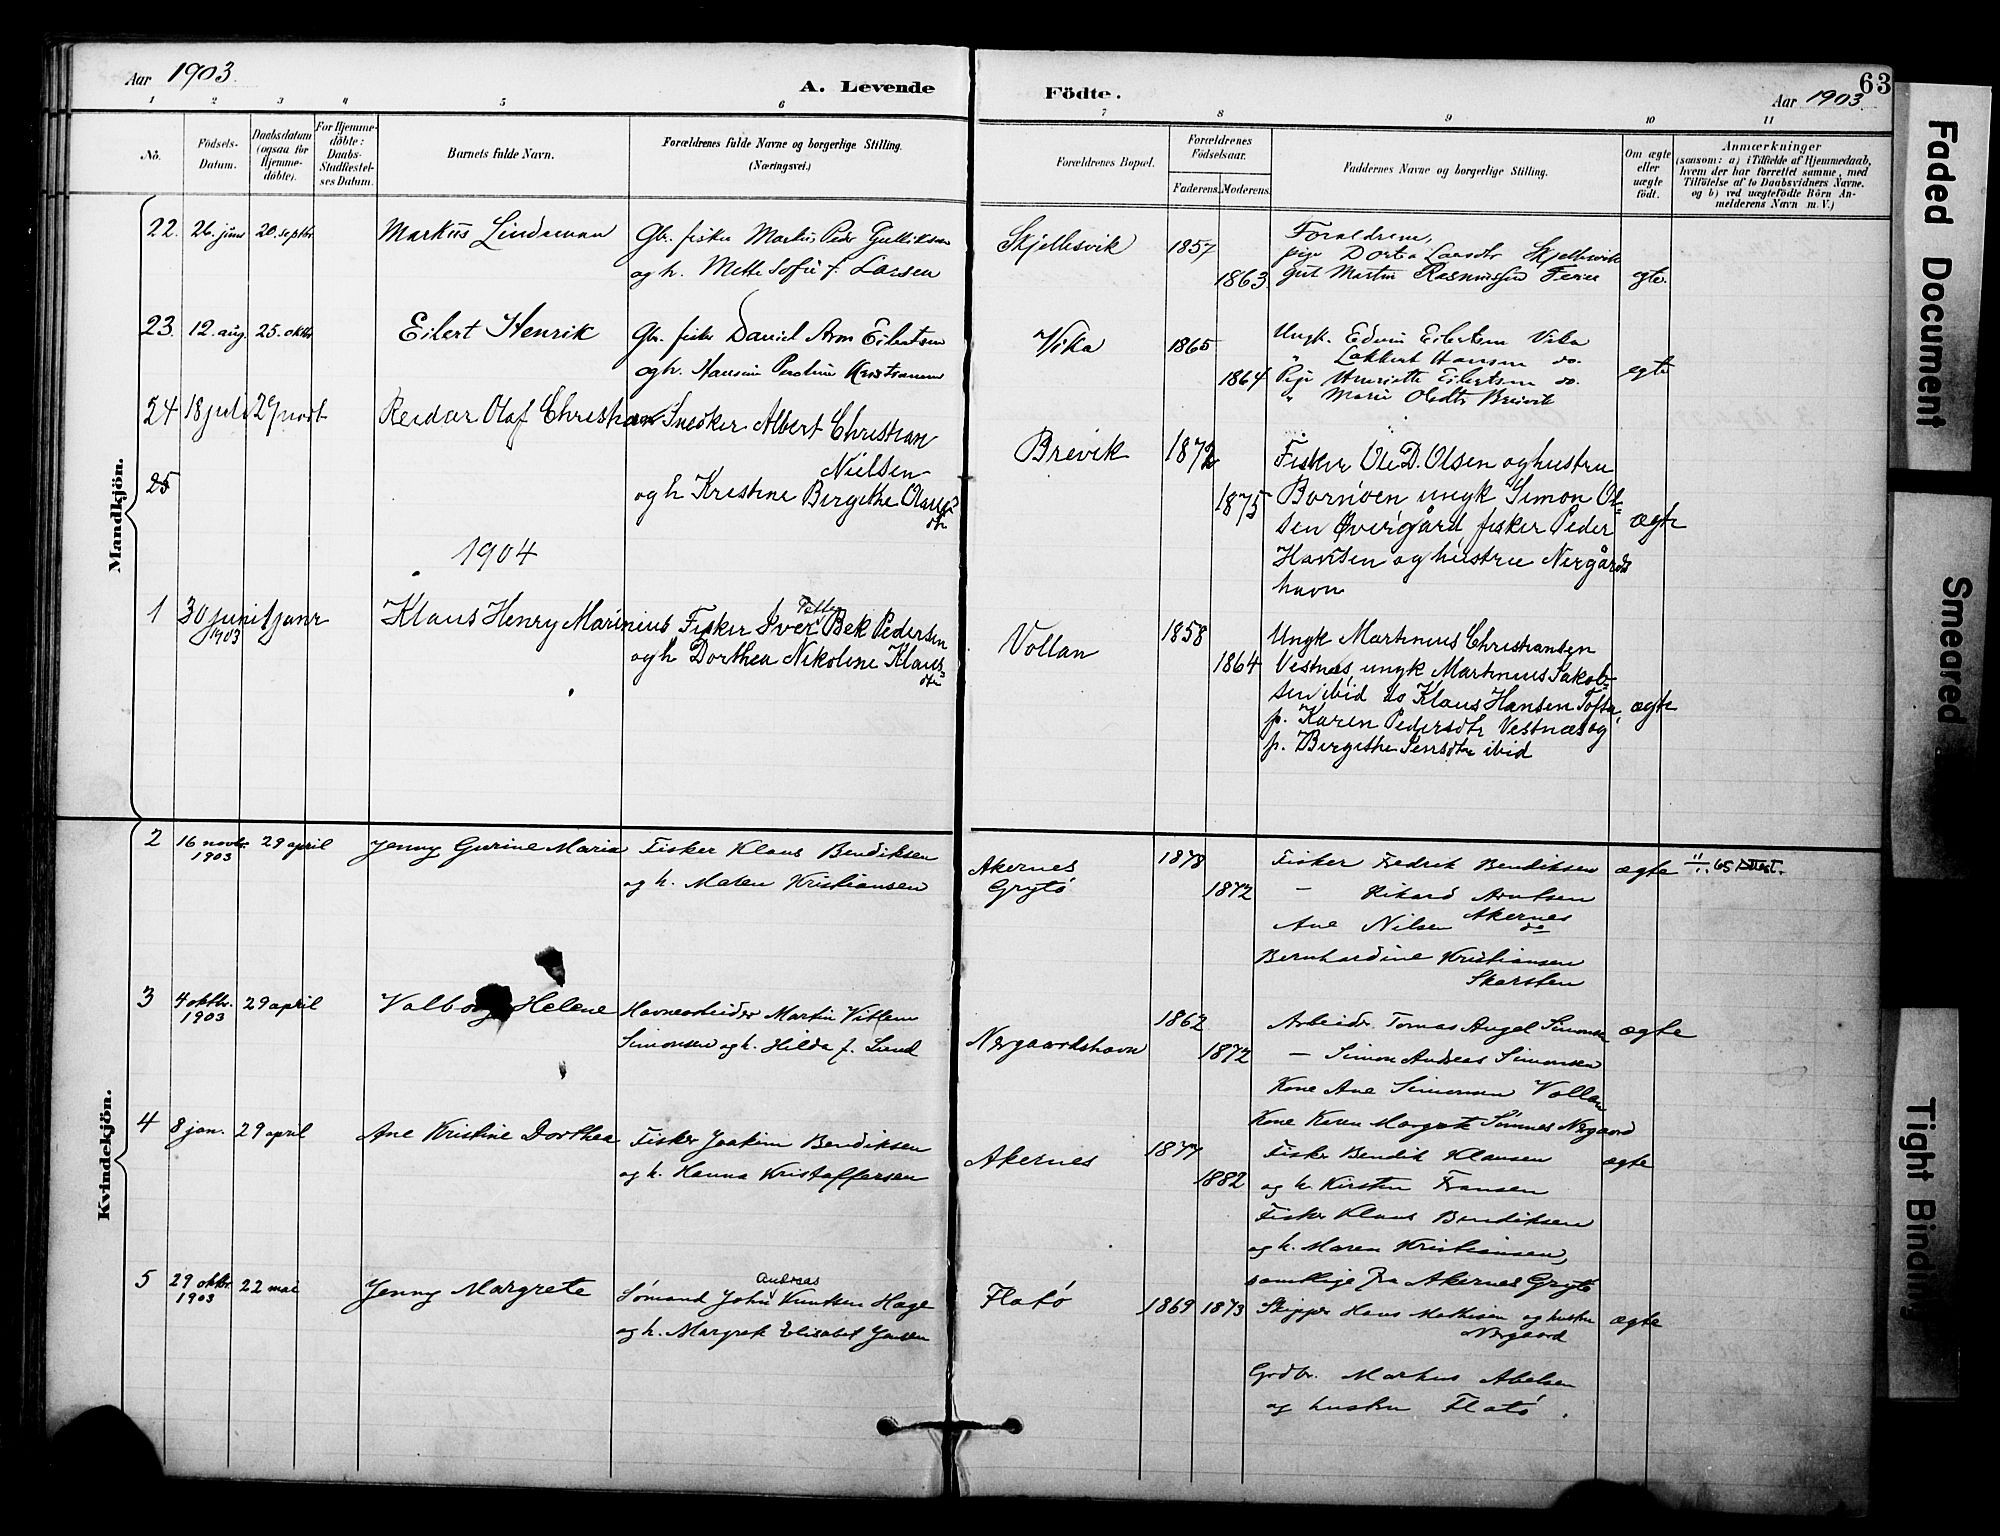 Aar 1903.
A. Levende Födte.
63
Aar 1903
1 2 3 4 5 6 7 8 9 10 11
No.
Födsels-Datum.
Daabsdatum (ogsaa for Hjemme-döbte).
For Hjemme-döbte: Daabs-Stadfæstel-ses Datum.
Barnets fulde Navn.
Forældrenes fulde Navne og borgerlige Stilling. (Næringsvei.)
Forældrenes Bopæl.
Forældrenes Födselsaar.
Faderens. Moderens.
Faddernes Navne og borgerlige Stilling.
Om ægte eller uægte födt.
Anmærkninger
(saasom: a) i Tilfælde af Hjemmedaab, hvem der har forrettet samme, med Tilföielse af to Daabsvidners Navne, og b) ved uægtefödte Börn An-melderens Navn m. V.)
Mandkjön.
22. 26. juni 20. septbr. Markus Lindeman
Gbr. fisker Markus Peder Gulliksen
og h. Mette Sofie f. Larsen
Skjellesvik 1857 1863
Forældrene,
pige Dortea Larsdtr Skjellesvik
gut Martin Rasmussen
egte.
23. 12. aug. 25. oktbr Eilert Henrik
Gbr. fisker Daniel Aron Eilertsen
og h. Hansine Peroline Kristiansen
Vika 1865 1864
Ungk. Edvin Eilertsen Vika
" Hansen do.
Pige Henriette Eilertsen do.
" Marie Olsdtr Breivik
egte
24 18 juli 29 novbr Reidar Olaf Christian
Snedker Albert Christian
Nielsen
og h Kristine Bergithe Olaus
dtr
Brevik 1872 1875
Fisker Ole D. Olsen og hustru
Bornöen ungk Simon Ol-
sen Övergård fisker Peder
Hansen og hustru Nergårds
havn
ægte
25
1904
1 30 juni 1903 1 janr Klaus Henry Marinius
Petter
Fisker Iver Bek Pedersen
og h Dorthea Nikoline Klaus-
dtr
Vollan 1858 1864
Ungk Martinius Christiansen
Vestnæs, ungk Martinius Jakob-
sen ibid do Klaus Hansen Tofta,
p. Karen Pedersdtr Vestnæs og
p. Bergithe Jensdtr ibid
ægte
Kvindekjön.
2 16 novbr. 1903 29 april Jenny Gurine Maria
Fisker Klaus Bendiksen
og h. Maren Kristiansen
Akernes
Grytö
1878 1872
Fisker Fredrik Bendiksen
— Rikard Arntsen
Akernes
Ane Nilsen do
Bernhardine Kristiansen
Skarsten
ægte
65 Attest.
3 4 oktbr. 1903 29 april Valborg Helene
Havnearbeider Martin Villem
Simonsen og h. Hilda f. Lund
Nergaardshavn 1862 1872
Arbeider Tomas Angel Simonsen
— Simon Andreas Simonsen
Kone Ane Simonsen Vollan
Kone Karen Margrete Simnes Nergaard
ægte
4 8 jan. 29 april Ane Kristine Dorthea
Fisker Joakim Bendiksen
og h. Hanna Kristoffersen
Akernes 1877 1882
Fisker Bendik Klausen
og h. Kirsten Fransen
Fisker Klaus Bendiksen
og h. Maren Kristiansen,
samtlige fra Akernes Grytö
ægte
5 29 oktbr. 1903 22 mai Jenny Margrete
Andreas
Sömand John Knutsen Hage
og h. Margret Elisabet Jensen
Flatö 1869 1873
Skipper Hans Mathisen og hustru
Nergaard
Grdbr. Markus Abelsen
og hustru Flatö.
ægte
Faded Document
Smeared
Tight Binding